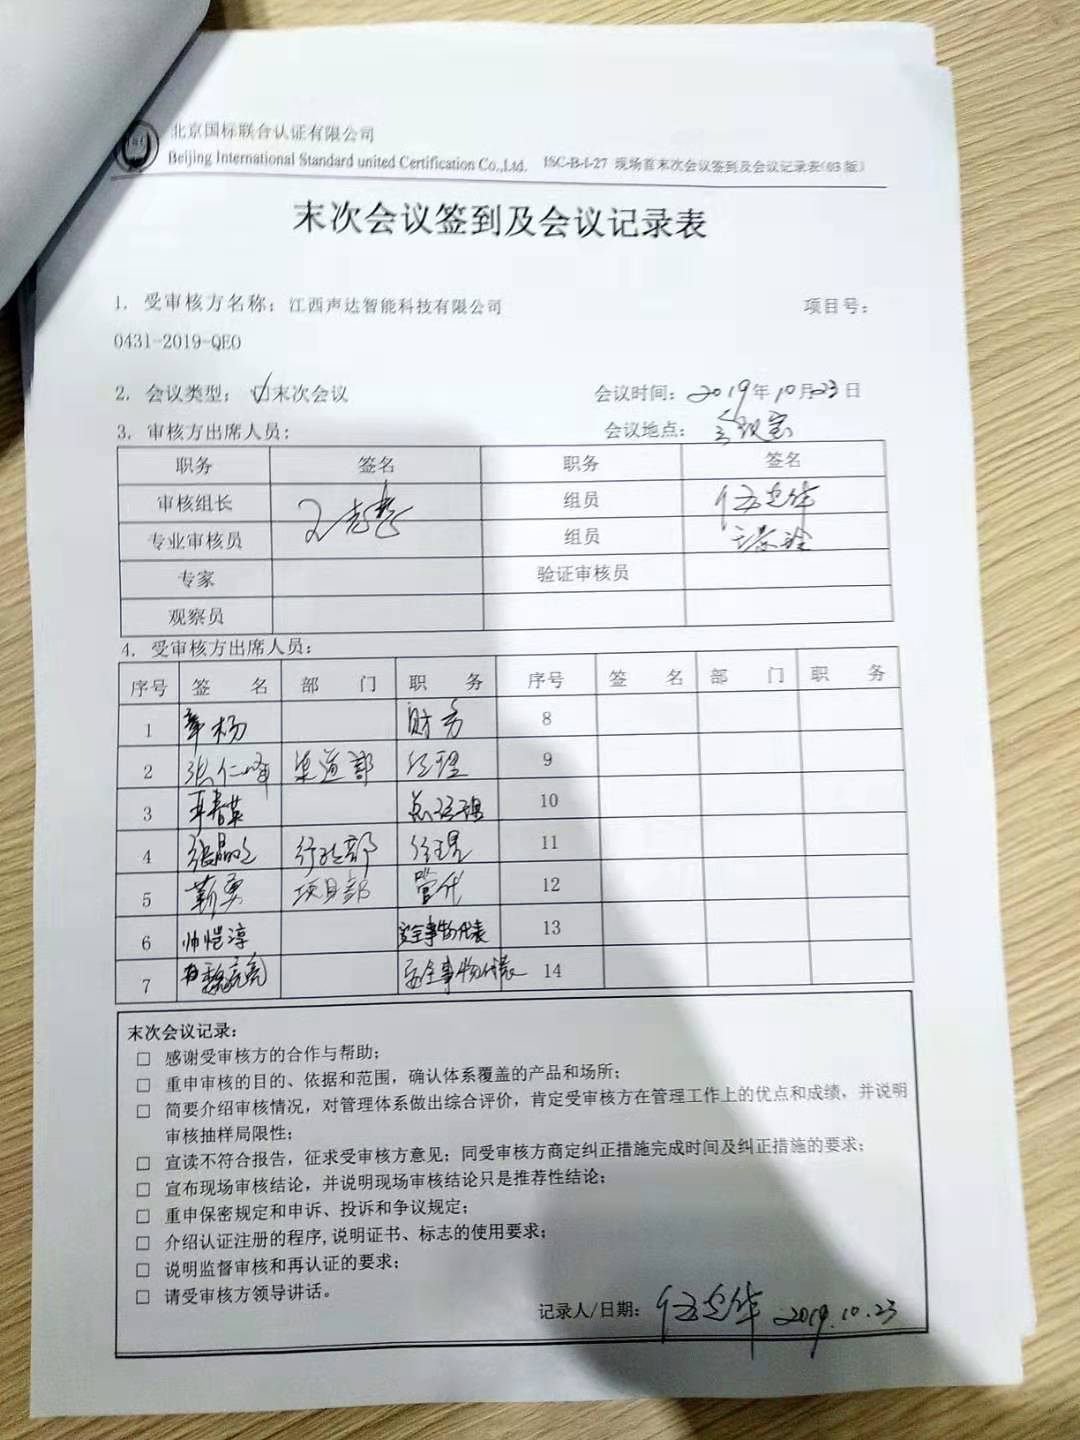 北京国标联合认证有限公司
Beijing International Standard united Certification Co.,Ltd. ISC-B-I-27 现场首末次会议签到及会议记录表(03版)
末次会议签到及会议记录表
1. 受审核方名称：江西声达智能科技有限公司 项目号：
0431-2019-QEO
2. 会议类型：☑末次会议 会议时间：2019年10月23日
3. 审核方出席人员： 会议地点：会议室
职务 签名 职务 签名
审核组长 组员 伍光华
专业审核员 组员
专家 验证审核员
观察员
4. 受审核方出席人员：
序号 签 名 部 门 职 务 序号 签 名 部 门 职 务
1 章杨 财务 8
2 张仁峰 渠道部 经理 9
3 总经理 10
4 行政部 经理 11
5 靳勇 项目部 管代 12
6 帅恺淳 安全事物代表 13
7 安全事物代表 14
末次会议记录：
□ 感谢受审核方的合作与帮助；
□ 重申审核的目的、依据和范围，确认体系覆盖的产品和场所；
□ 简要介绍审核情况，对管理体系做出综合评价，肯定受审核方在管理工作上的优点和成绩，并说明
审核抽样局限性；
□ 宣读不符合报告，征求受审核方意见；同受审核方商定纠正措施完成时间及纠正措施的要求；
□ 宣布现场审核结论，并说明现场审核结论只是推荐性结论；
□ 重申保密规定和申诉、投诉和争议规定；
□ 介绍认证注册的程序,说明证书、标志的使用要求；
□ 说明监督审核和再认证的要求；
□ 请受审核方领导讲话。
记录人/日期：伍光华 2019.10.23